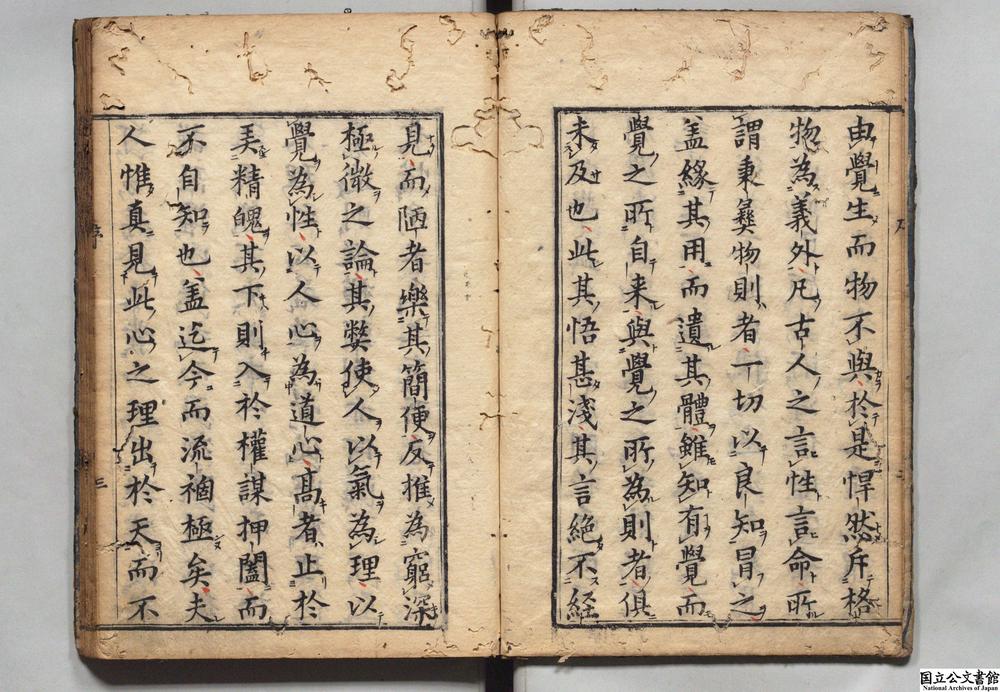 由覺生而物不與於是悍然斥格
物為義外凡古人之言性言命所
謂秉彝物則者一切以良知冒之
盖緣其用而遺其體雖知有覺而
覺之所自来與覺之所為則者俱
未及也此其悟甚淺其言絶不経
見而陋者樂其簡便反推為窮深
極微之論其弊使人以氣為理以
覺為性以人心為道心高者止於
弄精魄其下則入於權謀押闔而
不自知也盖迄今而流禍極矣夫
人惟真見此心之理出於天而不
序
三
国立公文書館
National Archives of Japan